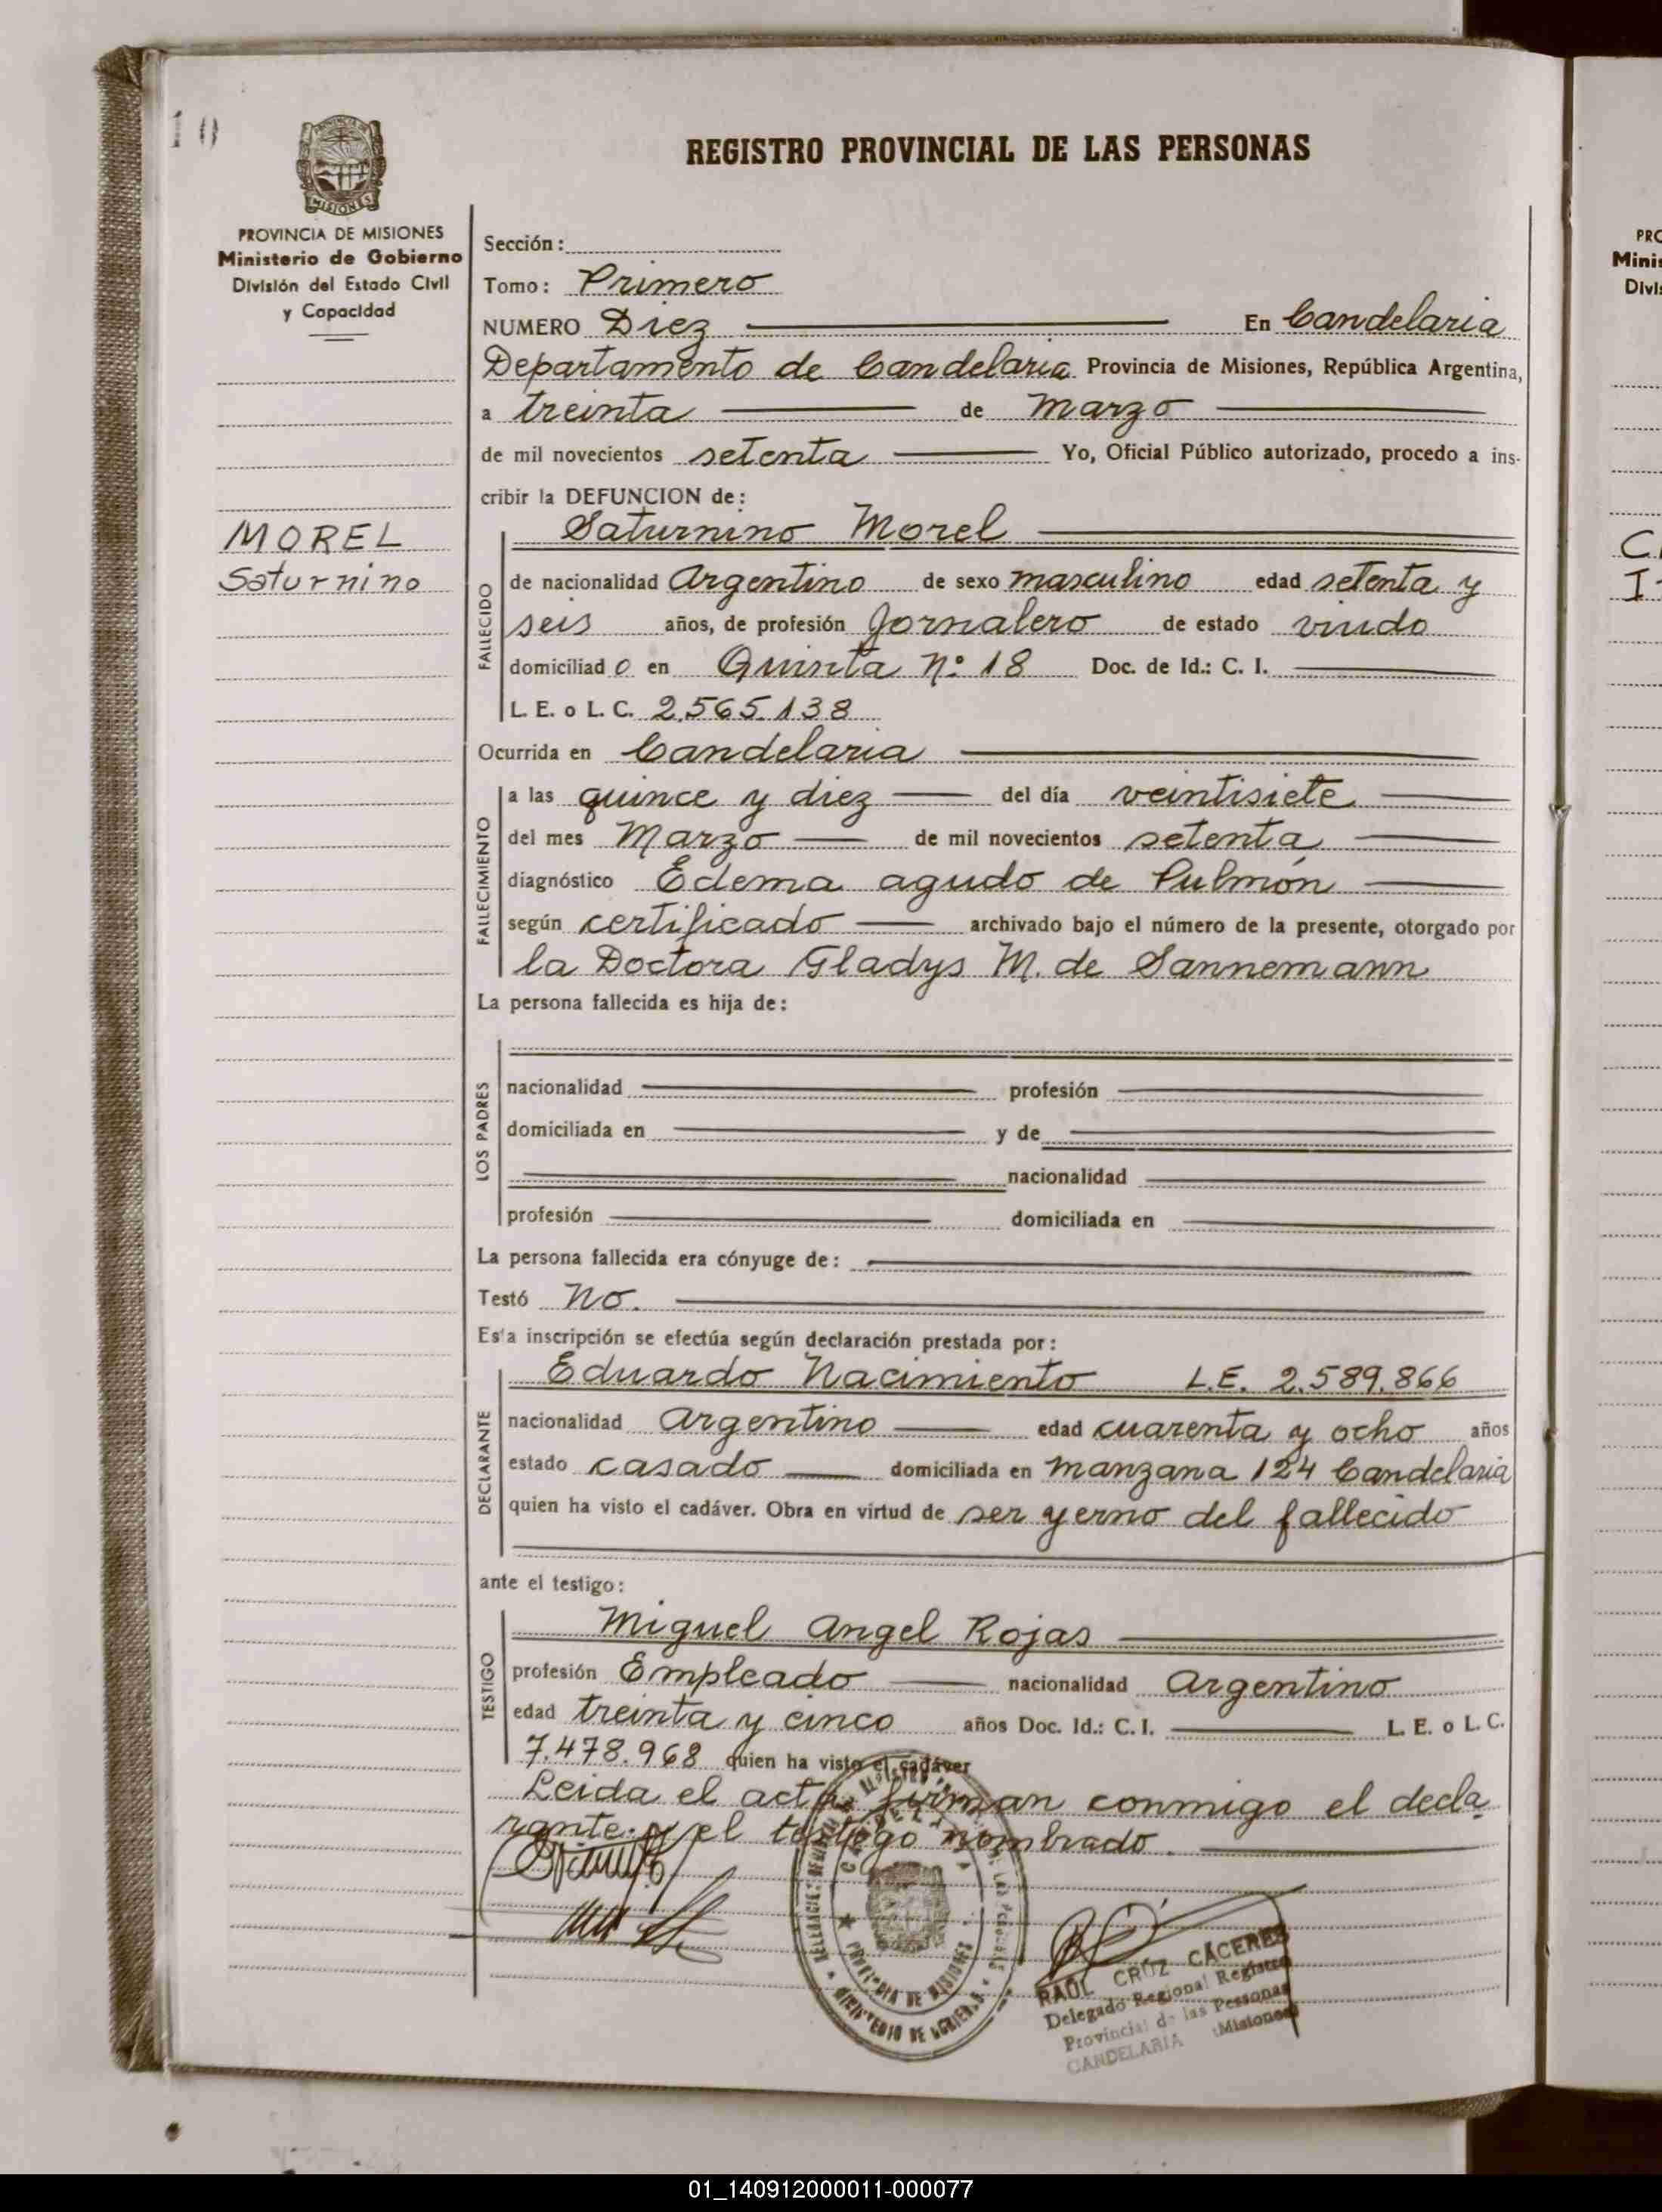 10
REGISTRO PROVINCIAL DE LAS PERSONAS
MISIONES
PROVINCIA DE MISIONES
Ministerio de Gobierno
División del Estado Civil
y Capacidad
MOREL
Saturnino
Sección:
Tomo: Primero
NUMERO Diez En Candelaria
Departamento de Candelaria Provincia de Misiones, República Argentina,
a treinta de Marzo
de mil novecientos setenta Yo, Oficial Público autorizado, procedo a ins-
cribir la DEFUNCION de:
Saturnino Morel
FALLECIDO
de nacionalidad Argentino de sexo masculino edad setenta y
seis años, de profesión Jornalero de estado viudo
domiciliad o en Quinta Nº 18 Doc. de Id.: C. I.
L. E. o L. C. 2.565.138
Ocurrida en Candelaria
FALLECIMIENTO
a las quince y diez del día veintisiete
del mes Marzo de mil novecientos setenta
diagnóstico Edema agudo de Pulmón
según certificado archivado bajo el número de la presente, otorgado por
la Doctora Gladys M. de Sannemann
La persona fallecida es hija de:
LOS PADRES
nacionalidad profesión
domiciliada en y de
nacionalidad
profesión domiciliada en
La persona fallecida era cónyuge de:
Testó No.
Esta inscripción se efectúa según declaración prestada por:
Eduardo Nacimiento L.E. 2.589.866
DECLARANTE
nacionalidad Argentino edad cuarenta y ocho años
estado casado domiciliada en manzana 124 Candelaria
quien ha visto el cadáver. Obra en virtud de ser yerno del fallecido
ante el testigo:
Miguel Angel Rojas
TESTIGO
profesión Empleado nacionalidad Argentino
edad treinta y cinco años Doc. Id.: C. I. L. E. o L. C.
7.478.968 quien ha visto el cadáver
Leida el acta firman conmigo el decla
rante y el testigo nombrado.
CANDELARIA
PROVINCIA DE MISIONES
MINISTERIO DE GOBIERNO
RAÚL CRUZ CACERES
Delegado Regional Registro
Provincial de las Personas
CANDELARIA (Misiones)
PRO
Minis
Divis
C
I
01_140912000011-000077